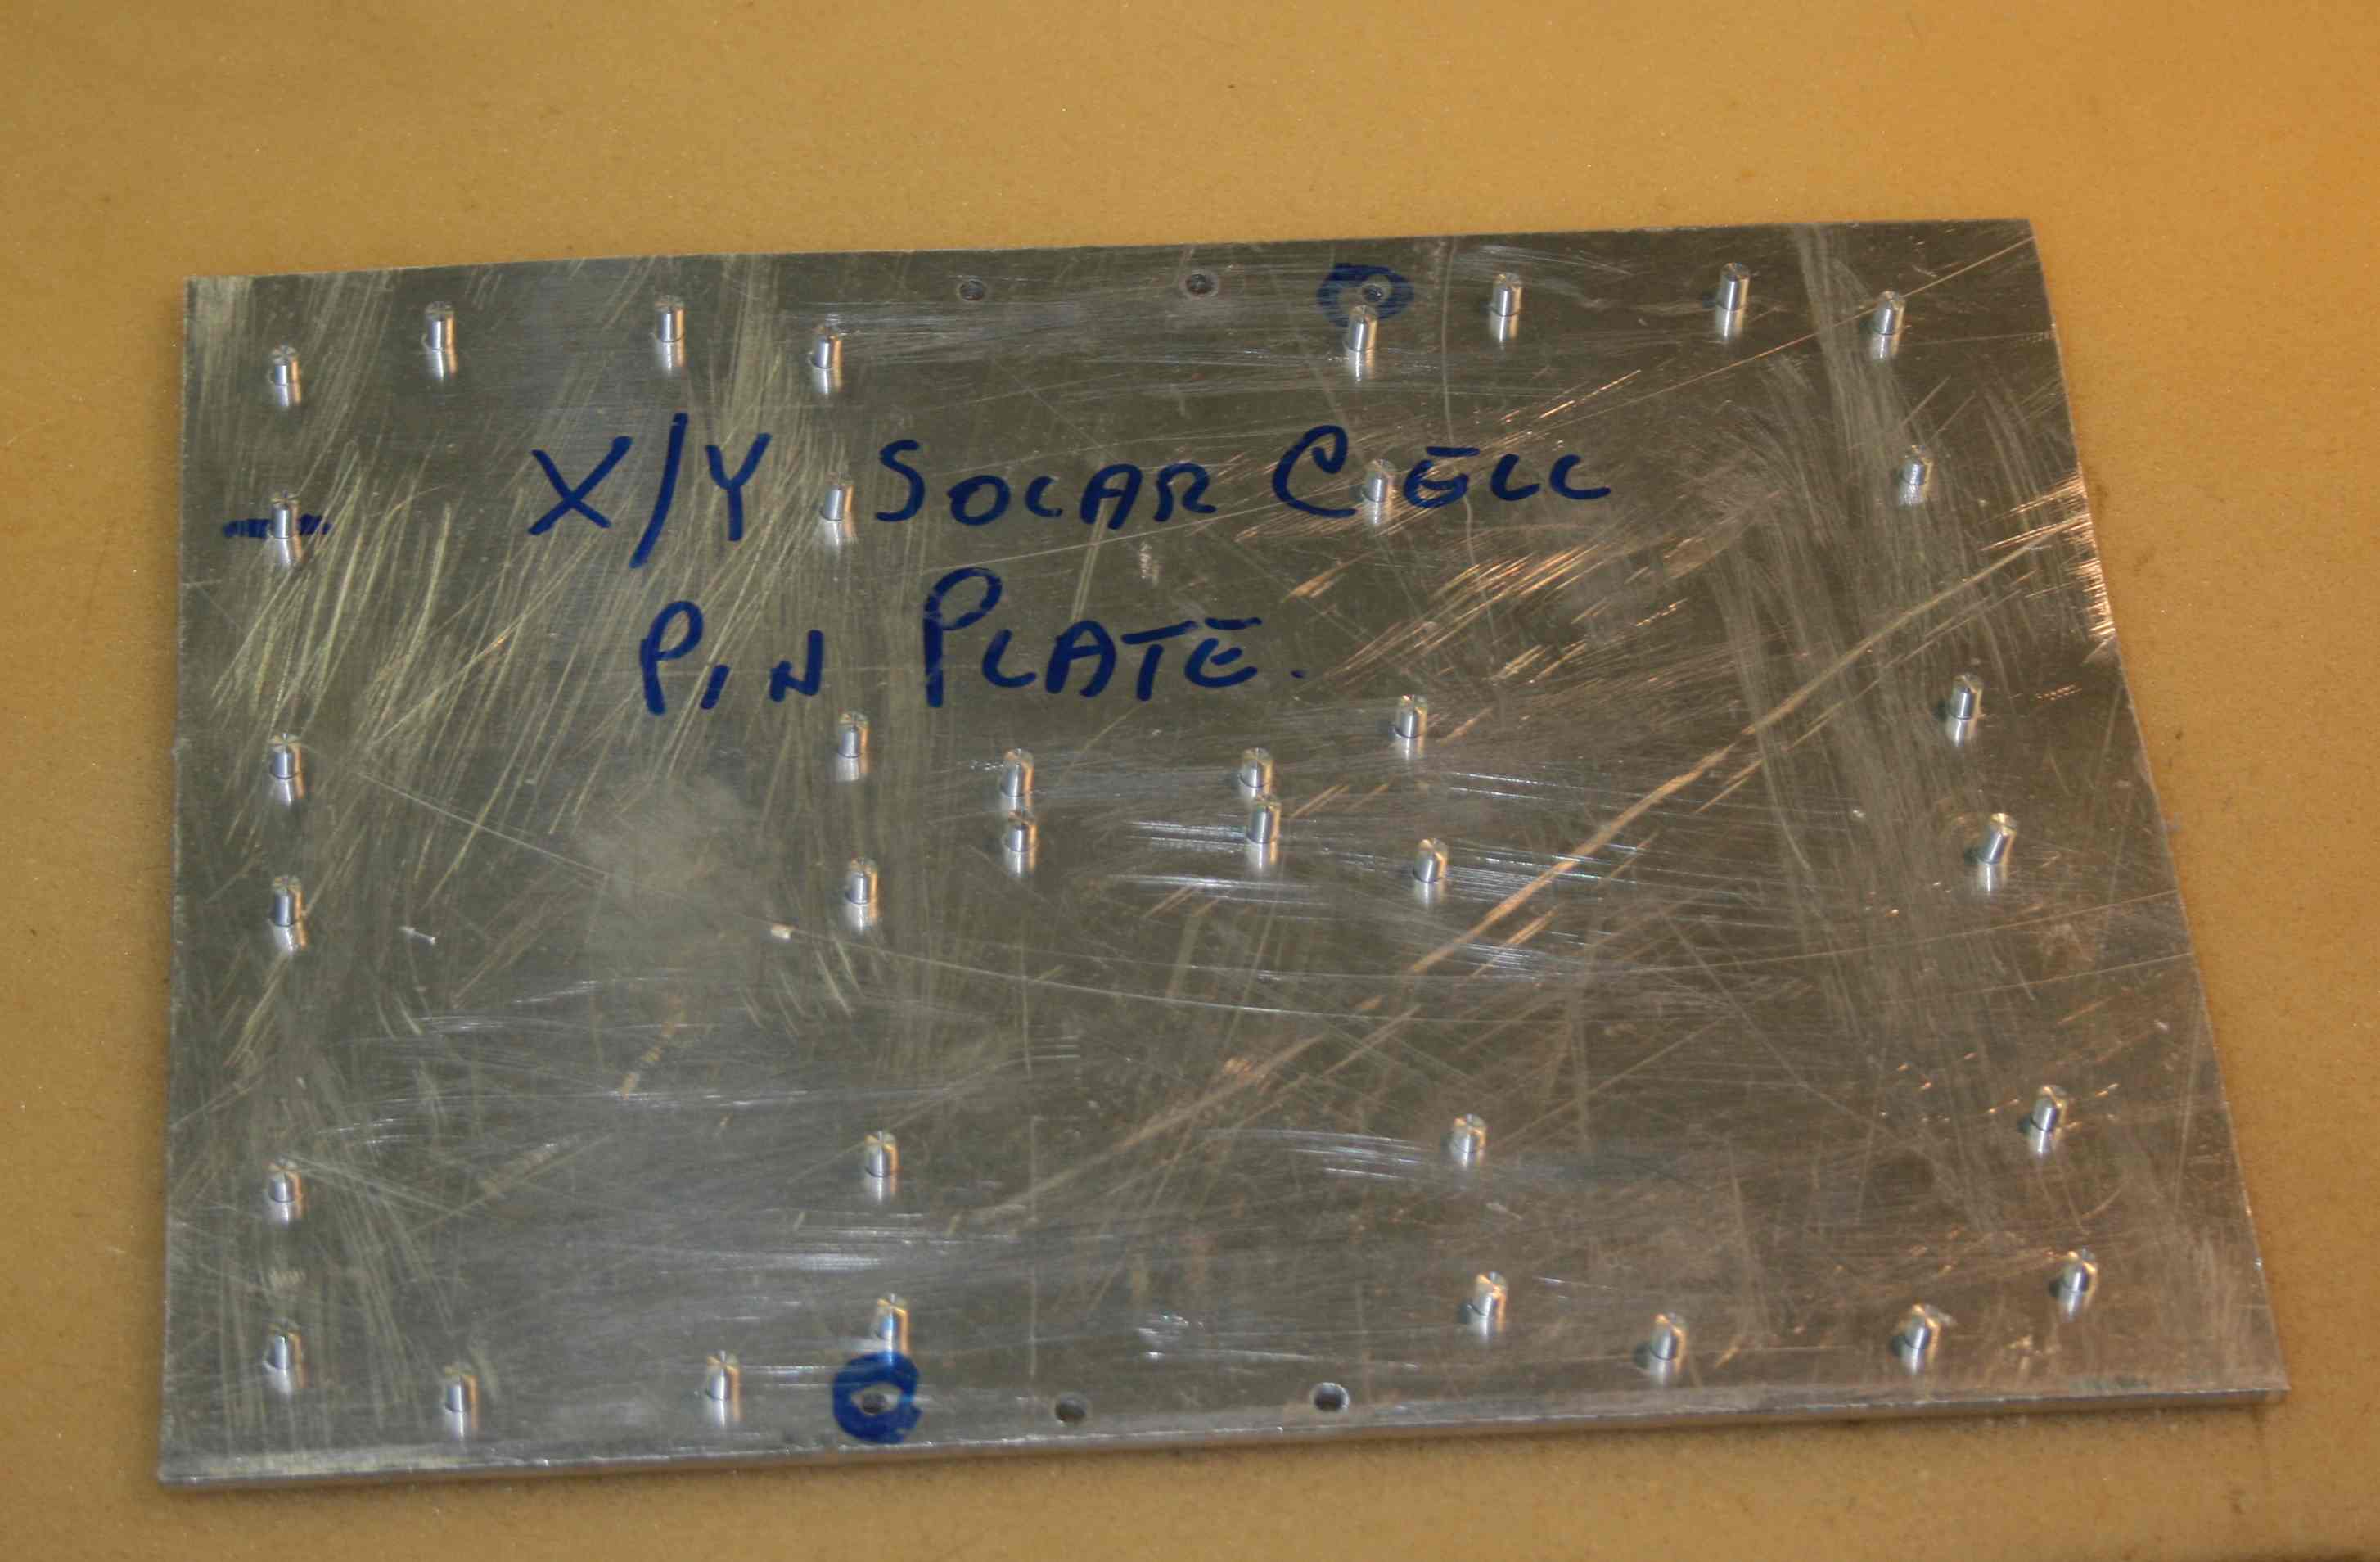 X/Y SOLAR CELL
PIN PLATE.